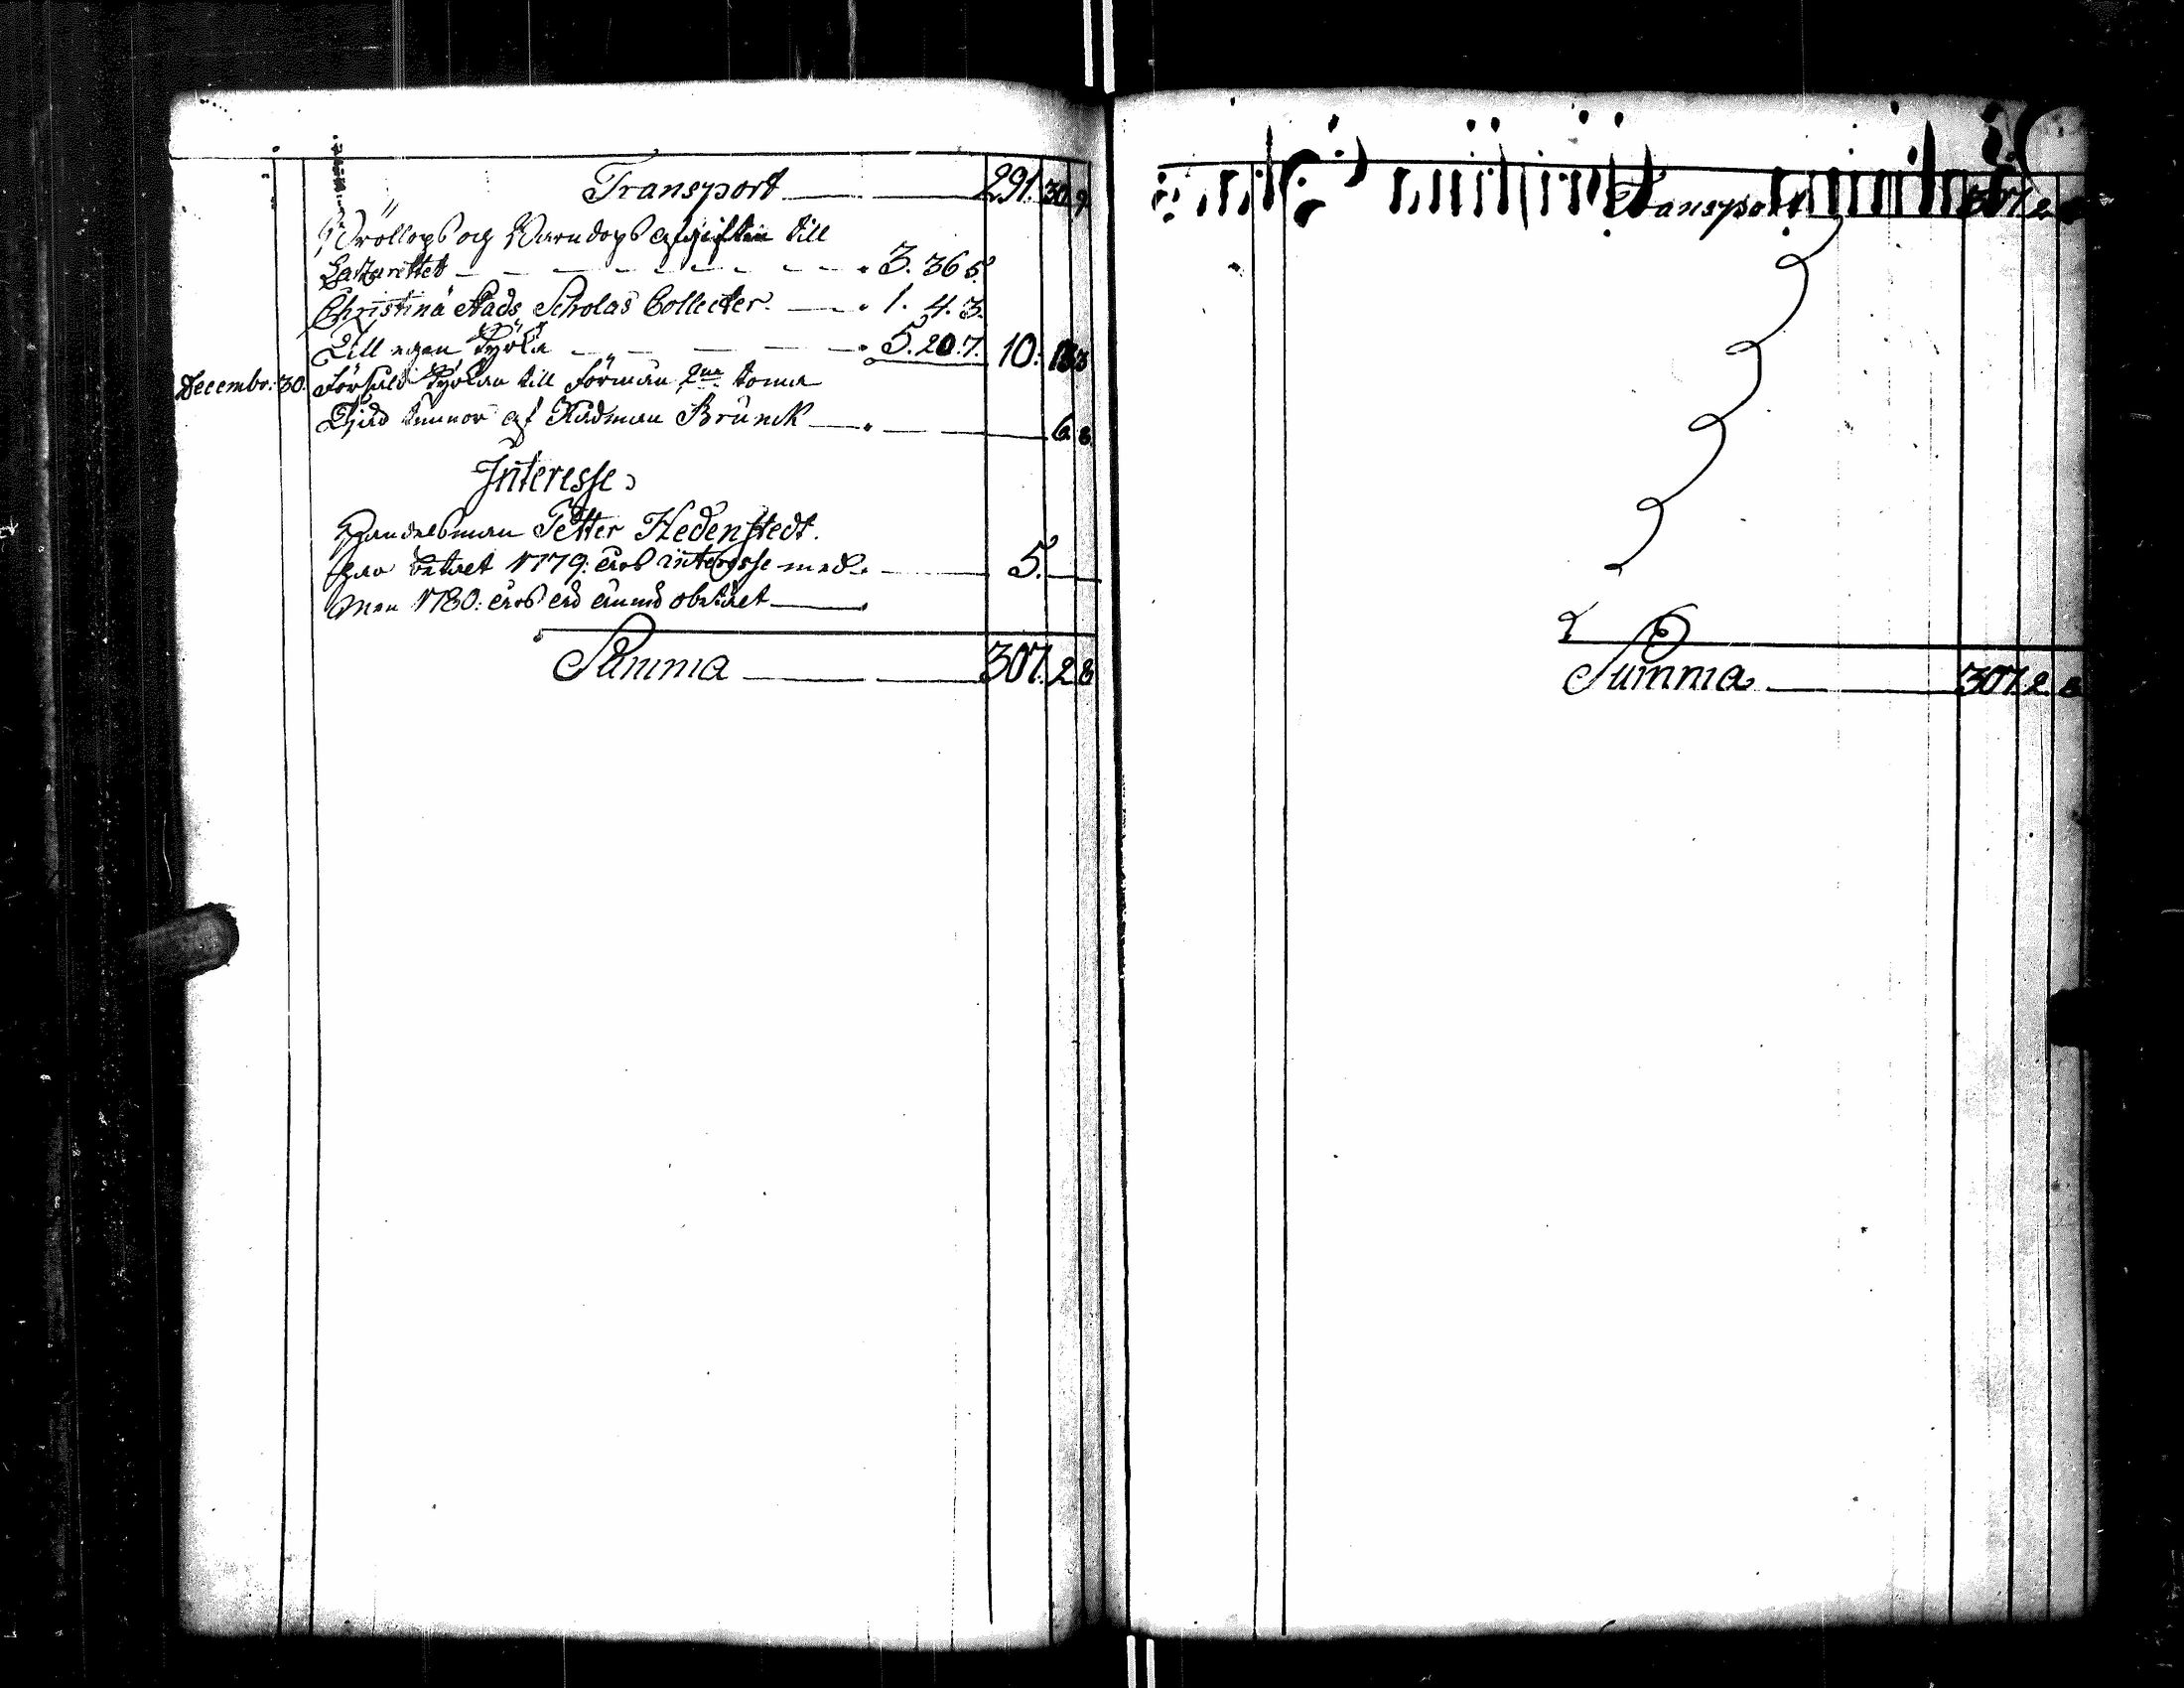 Transport 291. 30. 9.
Bröllops och Barndops afgiften till
Lazarettet 3. 36. 5.
Christinæ Stads Scholas Collecter 1. 4. 3.
Till egen Kyrka 5. 20. 7. 10. 13. 3
Decembr: 30. till Förman 2ne toma
Tjär tunnor af Rådman Brunck 6. 8.
Interesse
Handelsman Petter Hedenstedt.
har betalt 1779: års interesse med 5.
Men 1780: års än obetalt
Summa 307. 2. 8
Transport 307. 2.
Summa 307. 2. 8